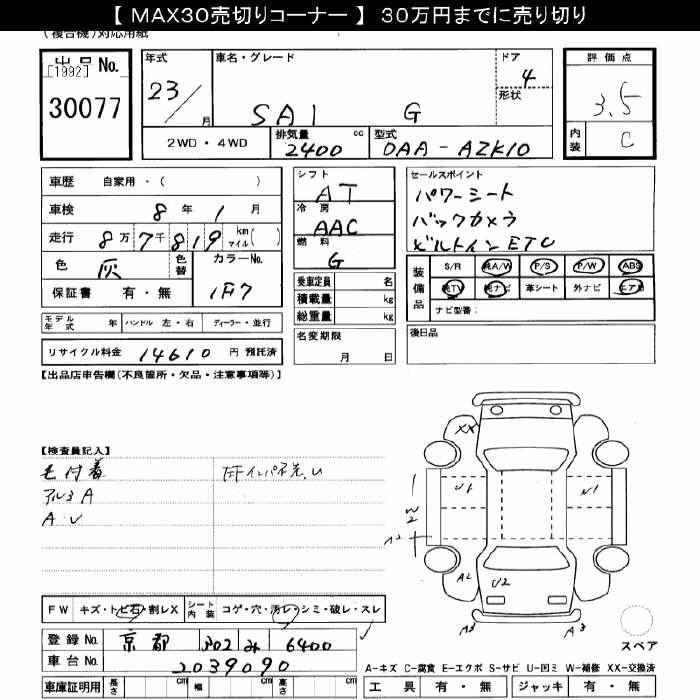 【 MAX30売切りコーナー 】 30万円までに売り切り
(複合機)対応用紙
出品 No.
[1992]
30077
年式 23/ 月
車名・グレード SAI G
ドア 4
形状
2WD・4WD
排気量 2400 cc
型式 DAA-AZK10
評価点 3.5
内装 C
車歴 自家用・( )
車検 8年 1月
走行 8万7千819 km マイル( )
色 灰 色替 カラーNo. 1F7
保証書 有・無
モデル年式 年 ハンドル 左・右 ディーラー・並行
リサイクル料金 14610 円 預託済
シフト AT
冷房 AAC
燃料 G
乗車定員 名
積載量 kg
総重量 kg
名変期限 月 日
セールスポイント
パワーシート
バックカメラ
ビルトインETC
装備品 S/R 純A/W P/S P/W ABS
純TV 純ナビ 革シート 外ナビ エアB
ナビ型番:
後日品
【出品店申告欄(不良箇所・欠品・注意事項等)】
【検査員記入】
毛付着
アルミA
A・U
XX
U1
U1
W2
A2
A2
U2
A3
A3
FW キズ・トビ石・割レX
シート内装 コゲ・穴・汚レ・シミ・破レ・スレ
登録No. 京都 302 み 6400
車台No. 2039090
車庫証明用 長さ cm 幅 cm 高さ cm
スペア
A-キズ C-腐食 E-エクボ S-サビ U-凹ミ W-補修 XX-交換済
工具 有・無 ジャッキ 有・無